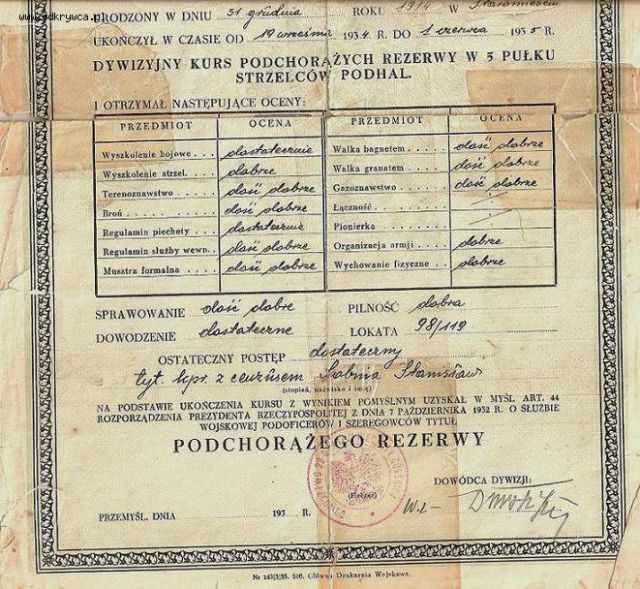 www.odkrywca.pl
URODZONY W DNIU 31 grudnia ROKU 1914 w
UKOŃCZYŁ W CZASIE OD 19 września 1934 R. DO 1 czerwca 1935 R.
DYWIZYJNY KURS PODCHORĄŻYCH REZERWY W 5 PUŁKU
STRZELCÓW PODHAL.
I OTRZYMAŁ NASTĘPUJĄCE OCENY:
PRZEDMIOT OCENA PRZEDMIOT OCENA
Wyszkolenie bojowe . . . dostatecznie Walka bagnetem . . . . dość dobrze
Wyszkolenie strzel. . . . dobrze Walka granatem . . . . dość dobrze
Terenoznawstwo . . . . dość dobrze Gazoznawstwo . . . . . dość dobrze
Broń . . . . . . . . dość dobrze Łączność . . . . . . .
Regulamin piechoty . . . dostatecznie Pionierka . . . . . . .
Regulamin służby wewn. . dość dobrze Organizacja armji . . . . dobrze
Musztra formalna . . . . dość dobrze Wychowanie fizyczne . . . dobrze
SPRAWOWANIE dość dobre PILNOŚĆ dobra
DOWODZENIE dostateczne LOKATA 98/119
OSTATECZNY POSTĘP dostateczny
tyt. kpr. z cenzusem Stanisław
(stopień, nazwisko i imię)
NA PODSTAWIE UKOŃCZENIA KURSU Z WYNIKIEM POMYŚLNYM UZYSKAŁ W MYŚL ART. 44
ROZPORZĄDZENIA PREZYDENTA RZECZYPOSPOLITEJ Z DNIA 7 PAŹDZIERNIKA 1932 R. O SŁUŻBIE
WOJSKOWEJ PODOFICERÓW I SZEREGOWCÓW TYTUŁ
PODCHORĄŻEGO REZERWY
DOWÓDCA DYWIZJI:
(Pieczęć)
PRZEMYŚL, DNIA 193 R.
Nr 143/3/35. 100. Główna Drukarnia Wojskowa.